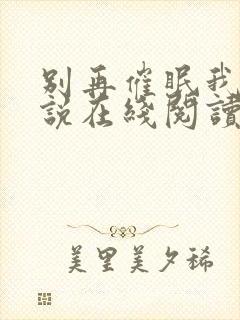 别再催眠我
說在綫閱讀
美里美夕稀